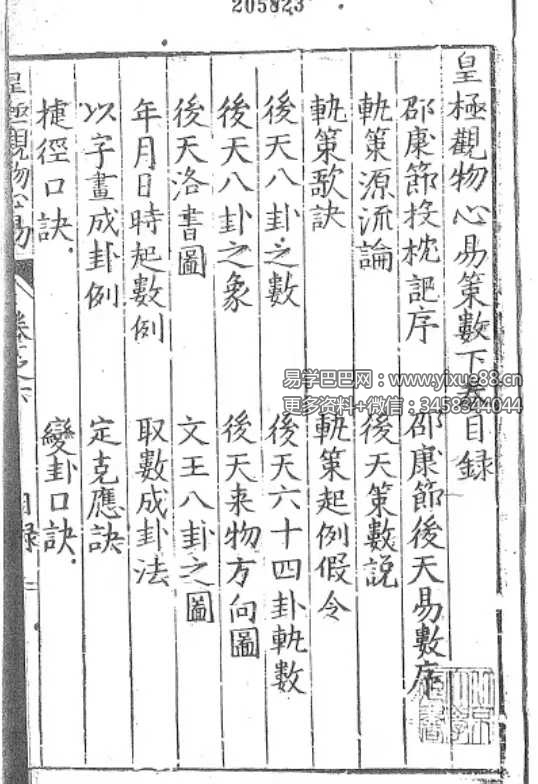 205823
皇極觀物心易策數下卷目録
邵康節投枕記序　邵康節後天易數序
軌策源流論　後天策數説
軌策歌訣　軌策起例假令
後天八卦之數　後天六十四卦軌數
後天八卦之象　後天来物方向圖
後天洛書圖　文王八卦之圖
年月日時起數例　取數成卦法
以字畫成卦例　定克應訣
捷徑口訣　變卦口訣
皇極觀物心易
目録
易学巴巴网：www.yixue88.cn
更多资料+微信：3458344044